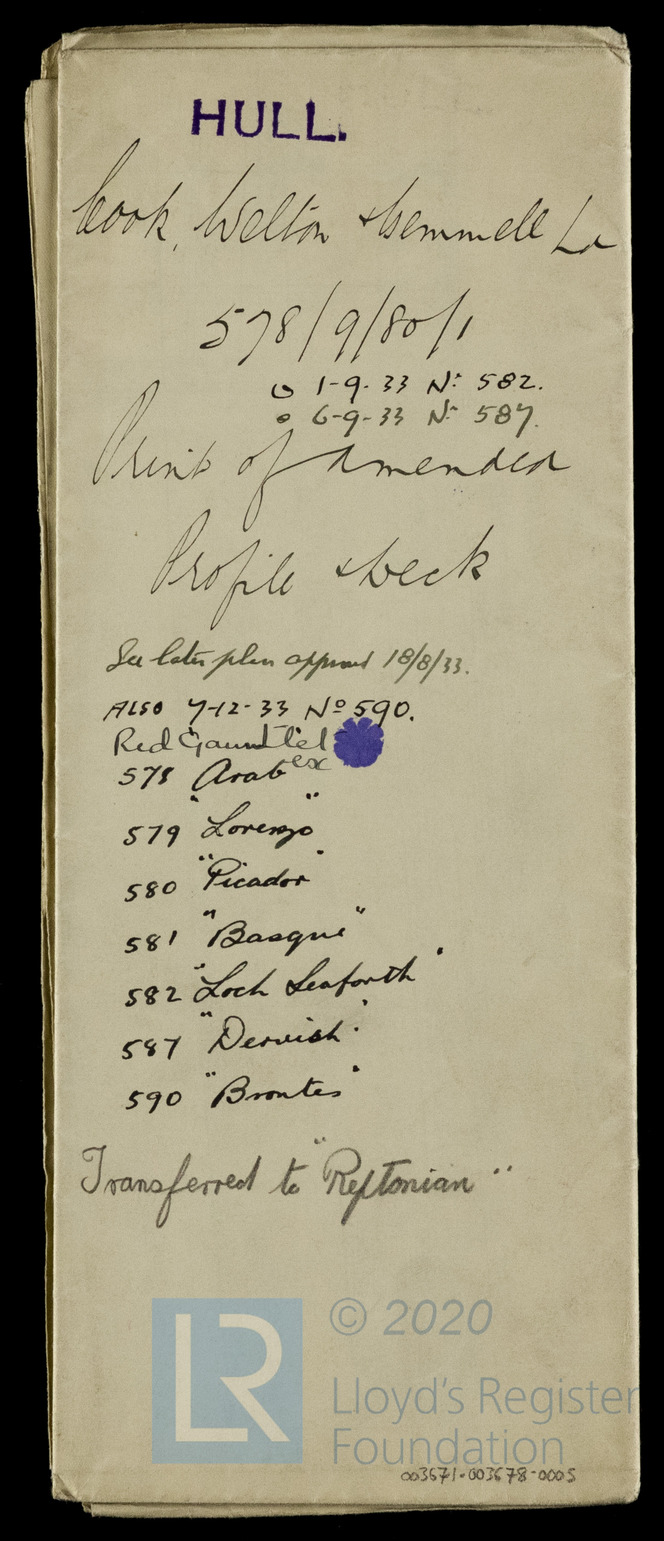 HULL.
Cook, Welton & Gemmell Ld
578/9/80/1
1-9-33 No 582.
6-9-33 No 587.
Print of amended
Profile & Deck
See later plan approved 18/8/33.
ALSO 7-12-33 No 590.
Red Gauntlet
578 Arab ex
579 "Lorenzo"
580 "Picador"
581 "Basque"
582 "Loch Seaforth"
587 "Dervish"
590 "Brontes"
Transferred to "Reptonian"
LR
© 2020
Lloyd's Register
Foundation
003671-003678-0005